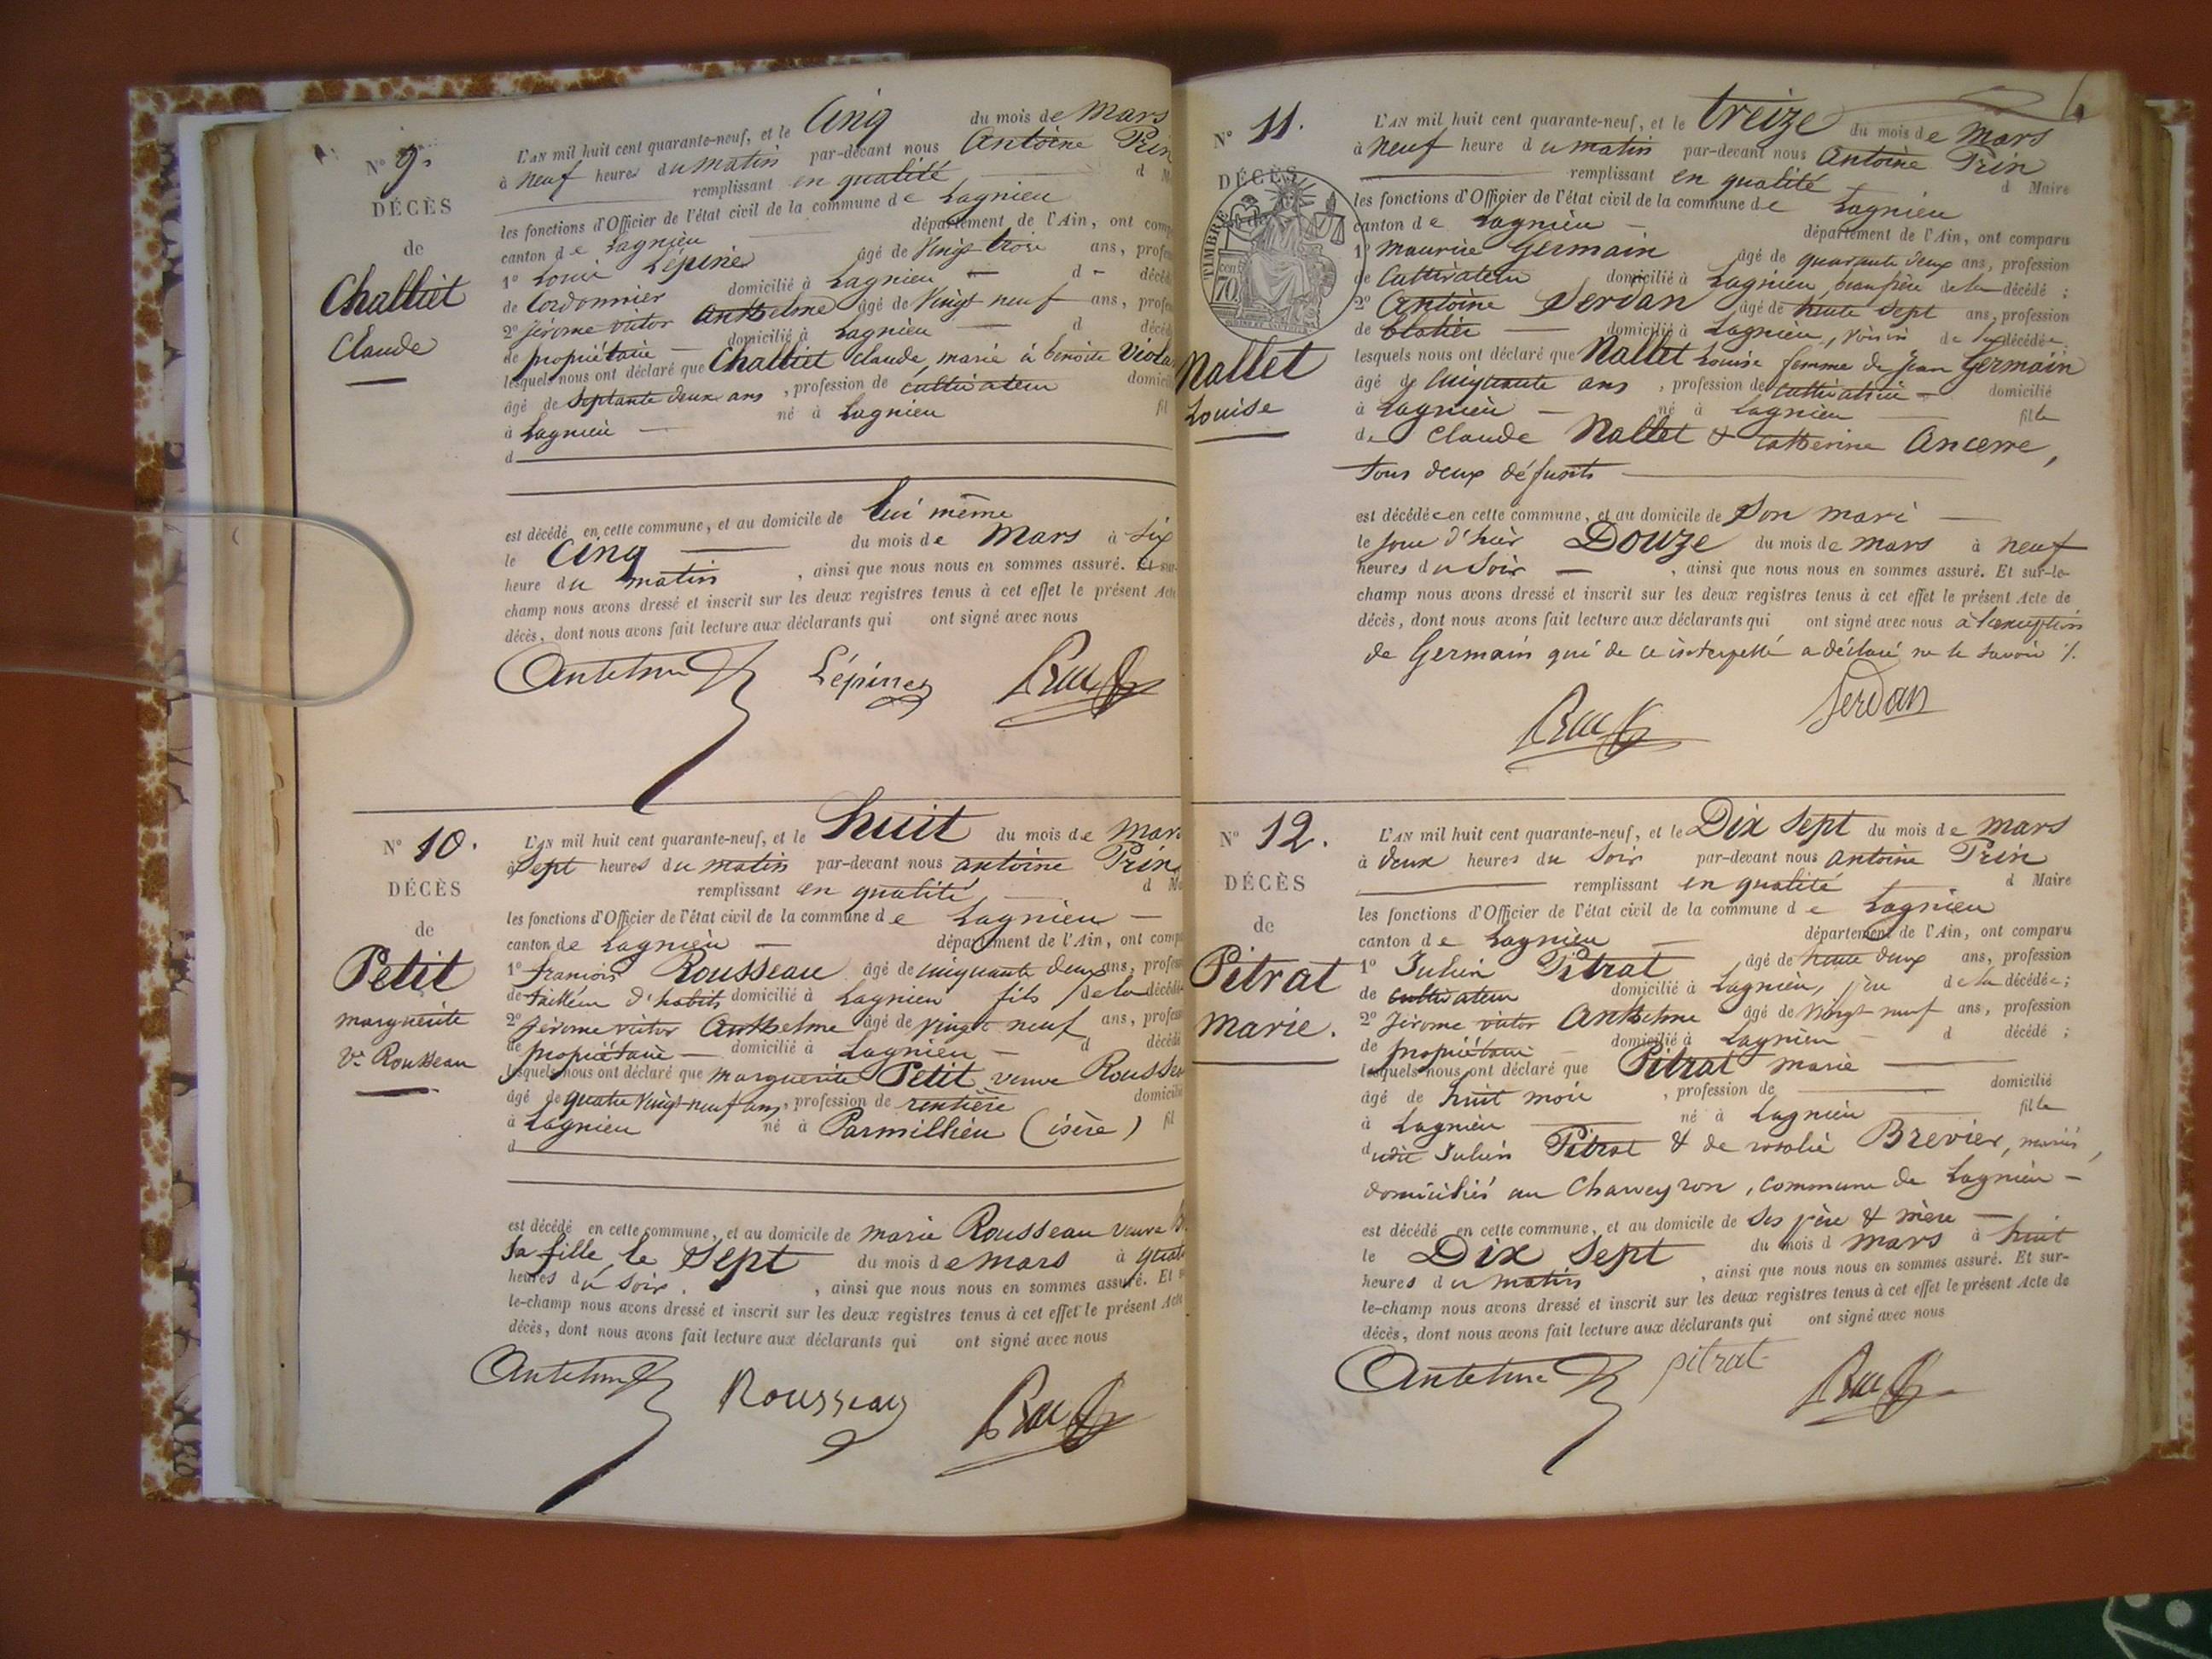 N° 9.
DÉCÈS
de
Challiet
Claude
L'AN mil huit cent quarante-neuf, et le Cinq du mois de Mars
à neuf heures du matin par-devant nous Antoine Prin
remplissant en qualité d
les fonctions d'Officier de l'état civil de la commune de Lagnieu
canton de Lagnieu département de l'Ain, ont
1° Louis Lépine âgé de Vingt trois ans,
de Cordonnier domicilié à Lagnieu d
2° Jérome victor Anthelme âgé de Vingt neuf ans,
de propriétaire domicilié à Lagnieu d
lesquels nous ont déclaré que Challiet Claude, marié à benoite
âgé de Septante deux ans, profession de cultivateur
à Lagnieu né à Lagnieu fil
d
est décédé en cette commune, et au domicile de lui même
le Cinq du mois de Mars à Six
heure du matin, ainsi que nous nous en sommes assuré.
champ nous avons dressé et inscrit sur les deux registres tenus à cet effet le présent Acte
décès, dont nous avons fait lecture aux déclarants qui ont signé avec nous
Anthelme Lépine
N° 10.
DÉCÈS
de
Petit
marguerite
Ve Rousseau
L'AN mil huit cent quarante-neuf, et le huit du mois de Mars
à Sept heures du matin par-devant nous antoine Prin
remplissant en qualité d
les fonctions d'Officier de l'état civil de la commune de Lagnieu
canton de Lagnieu département de l'Ain, ont
1° françois Rousseau âgé de cinquante deux ans,
de tailleur d'habits domicilié à Lagnieu fils de la
2° Jérome victor Anthelme âgé de vingt neuf ans,
de propriétaire domicilié à Lagnieu d
lesquels nous ont déclaré que marguerite Petit veuve
âgé de quatre Vingt-neuf ans, profession de rentière
à Lagnieu né à Parmillieu (isère) fil
d
est décédé en cette commune, et au domicile de marie Rousseau veuve
sa fille, le Sept du mois de mars à
heures du soir, ainsi que nous nous en sommes assuré. Et
le-champ nous avons dressé et inscrit sur les deux registres tenus à cet effet le présent Acte
décès, dont nous avons fait lecture aux déclarants qui ont signé avec nous
Anthelme Rousseau
N° 11.
DÉCÈS
TIMBRE
70
Nallet
Louise
L'AN mil huit cent quarante-neuf, et le treize du mois de Mars
à Neuf heure du matin par-devant nous Antoine Prin
remplissant en qualité d Maire
les fonctions d'Officier de l'état civil de la commune de Lagnieu
canton de Lagnieu département de l'Ain, ont comparu
1° Maurice Germain âgé de quarante deux ans, profession
de Cultivateur domicilié à Lagnieu, beau frère de la décédé;
2° Antoine Serdan âgé de trente Sept ans, profession
de blatier domicilié à Lagnieu, voisin de la décédée.
lesquels nous ont déclaré que Nallet Louise femme de Jean Germain
âgé de Cinquante ans, profession de cultivatrice domicilié
à Lagnieu né à Lagnieu fille
de Claude Nallet & Catherine Ancerre,
tous deux défunts
est décédée en cette commune, et au domicile de Son mari
le jour d'hier Douze du mois de mars à neuf
heures du Soir, ainsi que nous nous en sommes assuré. Et sur-le-
champ nous avons dressé et inscrit sur les deux registres tenus à cet effet le présent Acte de
décès, dont nous avons fait lecture aux déclarants qui ont signé avec nous à l'exception
de Germain qui de ce interpellé a déclaré ne le savoir ./.
Serdan
N° 12.
DÉCÈS
de
Pitrat
Marie.
L'AN mil huit cent quarante-neuf, et le Dix Sept du mois de Mars
à deux heures du Soir par-devant nous Antoine Prin
remplissant en qualité d Maire
les fonctions d'Officier de l'état civil de la commune de Lagnieu
canton de Lagnieu département de l'Ain, ont comparu
1° Julien Pitrat âgé de trente deux ans, profession
de cultivateur domicilié à Lagnieu, père de la décédée;
2° Jérome victor Anthelme âgé de Vingt neuf ans, profession
de propriétaire domicilié à Lagnieu d décédé;
lesquels nous ont déclaré que Pitrat Marie
âgé de huit mois, profession de domicilié
à Lagnieu né à Lagnieu fille
dudit Julien Pitrat & de rosalie Brevier, mariés,
domiciliés au Charveyron, commune de Lagnieu
est décédé en cette commune, et au domicile de Ses père & mère
le Dix Sept du mois d mars à huit
heures du matin, ainsi que nous nous en sommes assuré. Et sur-
le-champ nous avons dressé et inscrit sur les deux registres tenus à cet effet le présent Acte de
décès, dont nous avons fait lecture aux déclarants qui ont signé avec nous
Anthelme pitrat